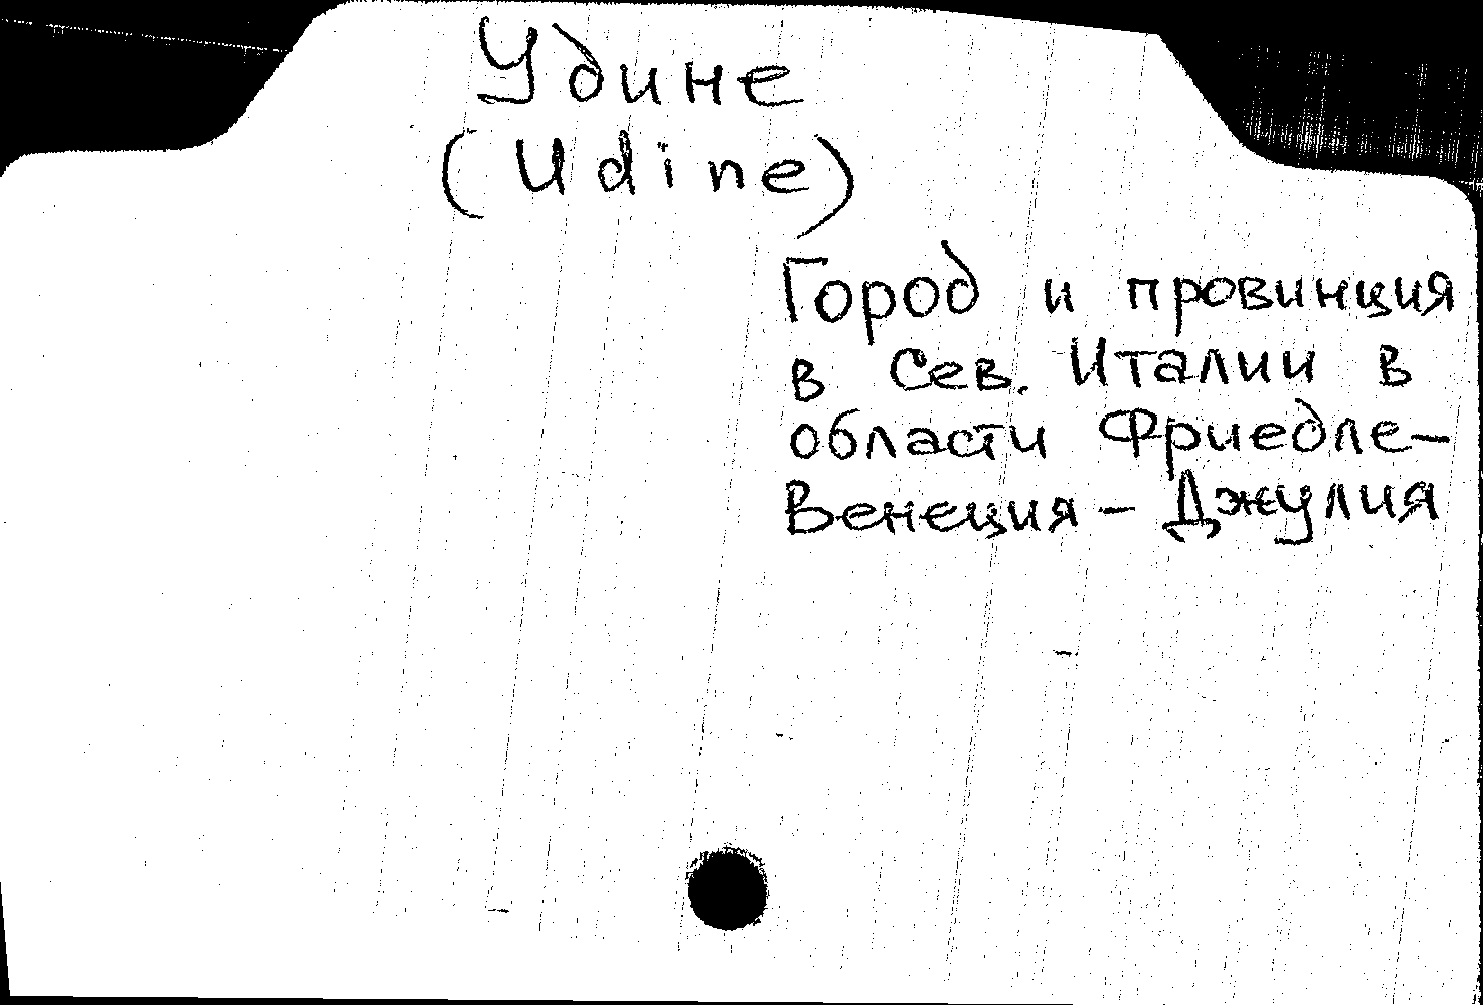 Удине
(Udine)
Город и провинция
в Сев. Италии в
области Фриедле-
Венеция - Джулия